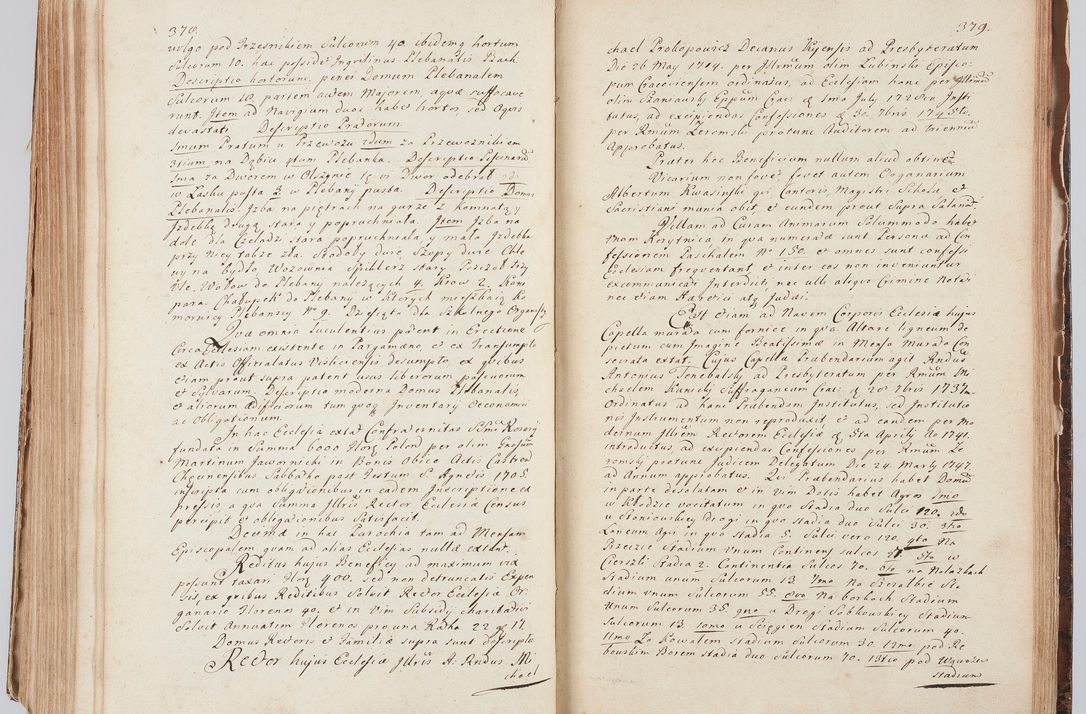 378.
vulgo pod Przesnikiem Sulcorum 40. ibidemq hortum
Sulcorum 10. hac possidet Inquilinus Plebanalis Bach.
Descriptio hortorum, penes Domum Plebanalem
Sulcorum 10. partem autem Majorem, aquæ suffocave
runt. Item ad Navigium duos habet hortos, sed Aquis
devastati. Descriptio Pratorum.
Imum Pratum u Przewozu 2dum za Przewoznikiem
3tium na Dąbiu 4tum Plebanka. Descriptio
Ima za Dworem w Dwor odebrał
w Lasku pusta w Plebany pusta. Descriptio Domus
Plebanalis. Izba na piętrach na gurze z komnatą, y
Izdebką drugą stara y popruchniała. Item Izba na
dole dla Czeladzi stara popruchniała, y mała Izdebka
przy niey także zła. Stodoły dwie Szopy dwie Chle
wy na bydło, Wozownia Spichlerz stary
Wołow do Plebany należących 4. Krow 2. Koni
para. Chałupek do Plebany w których mieszkaią Ko
mornicy Plebanscy No 9. Dziesiąta dla Szkolnego Organisty
Quæ omnia luculentius patent in Erectione
Circa Ecclesiam existente in Pargamæno et ex Transumpto
ex Actis Officialatus Visliciensis desumpto, ex quibus
etiam prout supra patent usus liberorum pascuorum
et Sylvarum, Descriptio moderna Domus Plebanalis,
et aliorum Ædificiorum tum quoq Inventary Oeconomici
ac obligationum.
In hac Ecclesia extat Confraternitas SSmi Rosary
fundata in Summa 6000 Flor Polon per olim Gnosum
Martinum Jawornicki in Bonis Obice Actis Castren
Chęcinensibus Sabbatho post Festum S. Agnetis 1705.
inscripta cum obligationibus in eadem Inscriptione ex
pressis, a qua Summa Illris Rector Ecclesiæ Census
percipit et obligationibus Satisfacit.
Decima in hac Parochia tam ad Mensam
Episcopalem quam ad alias Ecclesias nullæ extat.
Reditus hujus Beneficy ad maximum vix
possunt taxari Flor 400. sed non detruncatis Expen
sis, ex quibus Reditibus Solvit Rector Ecclesiæ Or
ganario Florenos 40. et in vim Subsidy charitativi
Solvit Annuatim Florenos pro una Ratha 22 g 12
Domus Rectoris et Familiæ supra sunt descriptæ
Rector hujus Ecclesiæ Illris A. Rndus Mi
chael
379.
chael Prokopowicz Decanus Kijensis ad Presbyteratum
Die 26 May 1714. per Illrmum olim Lubinski Episco-
pum Cracoviensem ordinatus, ad Ecclesiam hanc per Illrmum
olim Szaniawsky Eppum Crac: d Ima July 1728vo Insti
tutus, ad excipiendas Confessiones d 30. 7bris 1745to.
per Rmum Leremski protunc Auditorem ad triennium
Approbatus.
Præter hoc Beneficium nullum aliud obtinet
Vicarium non fovet, fovet autem Organarium
Albertum Kwasinski qui Cantoris Magistri Scholæ et
Sacristiani munia obit, et eundem prout Supra Salariat
Villam ad Curam Animarum Solummodo habet
Unam Korytnica, in qua numeratæ sunt Personæ ad Con
fessionem Paschalem No 150. et omnes sunt confessi
Ecclesiam frequentant et inter eos non inveniuntur
excommunicati Interdicti, nec ullo aliquo Crimine Notati
nec etiam Hæretici atq Judæi.
Est etiam ad Navem Corporis Ecclesiæ hujus
Capella murata cum fornice in qua Altare ligneum de
pictum cum Imagine Beatissimæ in Mensa Murata Con
secrata extat. Cujus Capellæ Præbendarium agit Rndus
Antonius Tenebalsky ad Presbyteratum per Rmum Mi
chaelem Kunicky Suffraganeum Crac: d 20 7bris 1737.
Ordinatus ad hanc Præbendam Institutus, sed Institutio
nis Instrumentum non reproduxit et ad eandem per Mo
dernum Illrem Rectorem Ecclesiæ d 5ta Aprilis Ao 1741.
introductus, ad excipiendas Confessiones per Rmum Le
remsky protunc Judicem Delegatum Die 24. Marty 1747.
ad Annum approbatus. Qui Præbendarius habet Domum
in parte desolatam et in vim Dotis habet Agros Imo
w Kłodzie vocitatum in quo Stadia duo Sulci 120. 2do
u Stoniowskiey drogi in quo Stadia duo Sulci 30. 3tio
Laneum Agri in quo Stadia 5. Sulci vero 120. 4to Na
Przeczce Stadium unum Continens sulcos 27. 5to w
Cierszli Stadia 2. Continentia Sulcos 70. 6to na Nalazkach
Stadium unum Sulcorum 13 7mo Na Szerolbie Sta
dium unum Sulcorum 55. 8vo Na borkach Stadium
Unum Sulcorum 35. 9no u Drogi Sobkowskiey Stadium
Sulcorum 13 10mo u Sciegien Stadium Sulcorum 40.
11mo Za Kowalem Stadium Sulcorum 30. 12mo pod Re
bowskim Borem Stadia duo Sulcorum 70. 13tio pod Wąwozem
Stadium